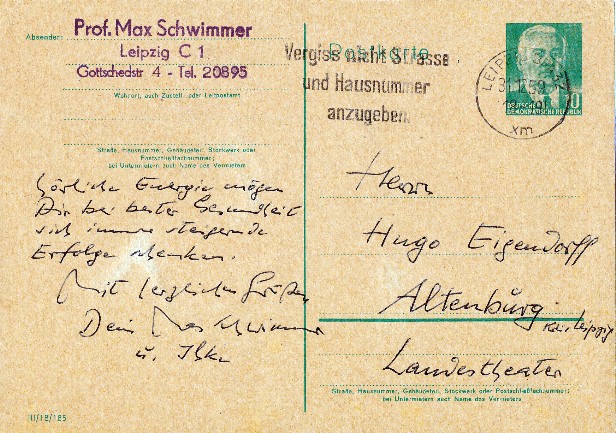 Absender:
Prof. Max Schwimmer
Leipzig C 1
Gottschedstr 4 - Tel. 20895
Wohnort, auch Zustell- oder Leitpostamt
Straße, Hausnummer, Gebäudeteil, Stockwerk oder
Postschließfachnummer;
bei Untermietern auch Name des Vermieters
Energie mögen
Dir bei bester Gesundheit
sich immer steigernde
Erfolge schenken.
Mit herzlichen Grüßen
Dein Max Schwimmer
u. Ilka
III/18/185
Postkarte
Vergiss nicht Strasse
und Hausnummer
anzugeben
LEIPZIG
xm
10
DEUTSCHE
DEMOKRATISCHE REPUBLIK
Herrn
Hugo Eigendorff
Altenburg
Leipzig
Landestheater
Straße, Hausnummer, Gebäudeteil, Stockwerk oder Postschließfachnummer;
bei Untermietern auch Name des Vermieters